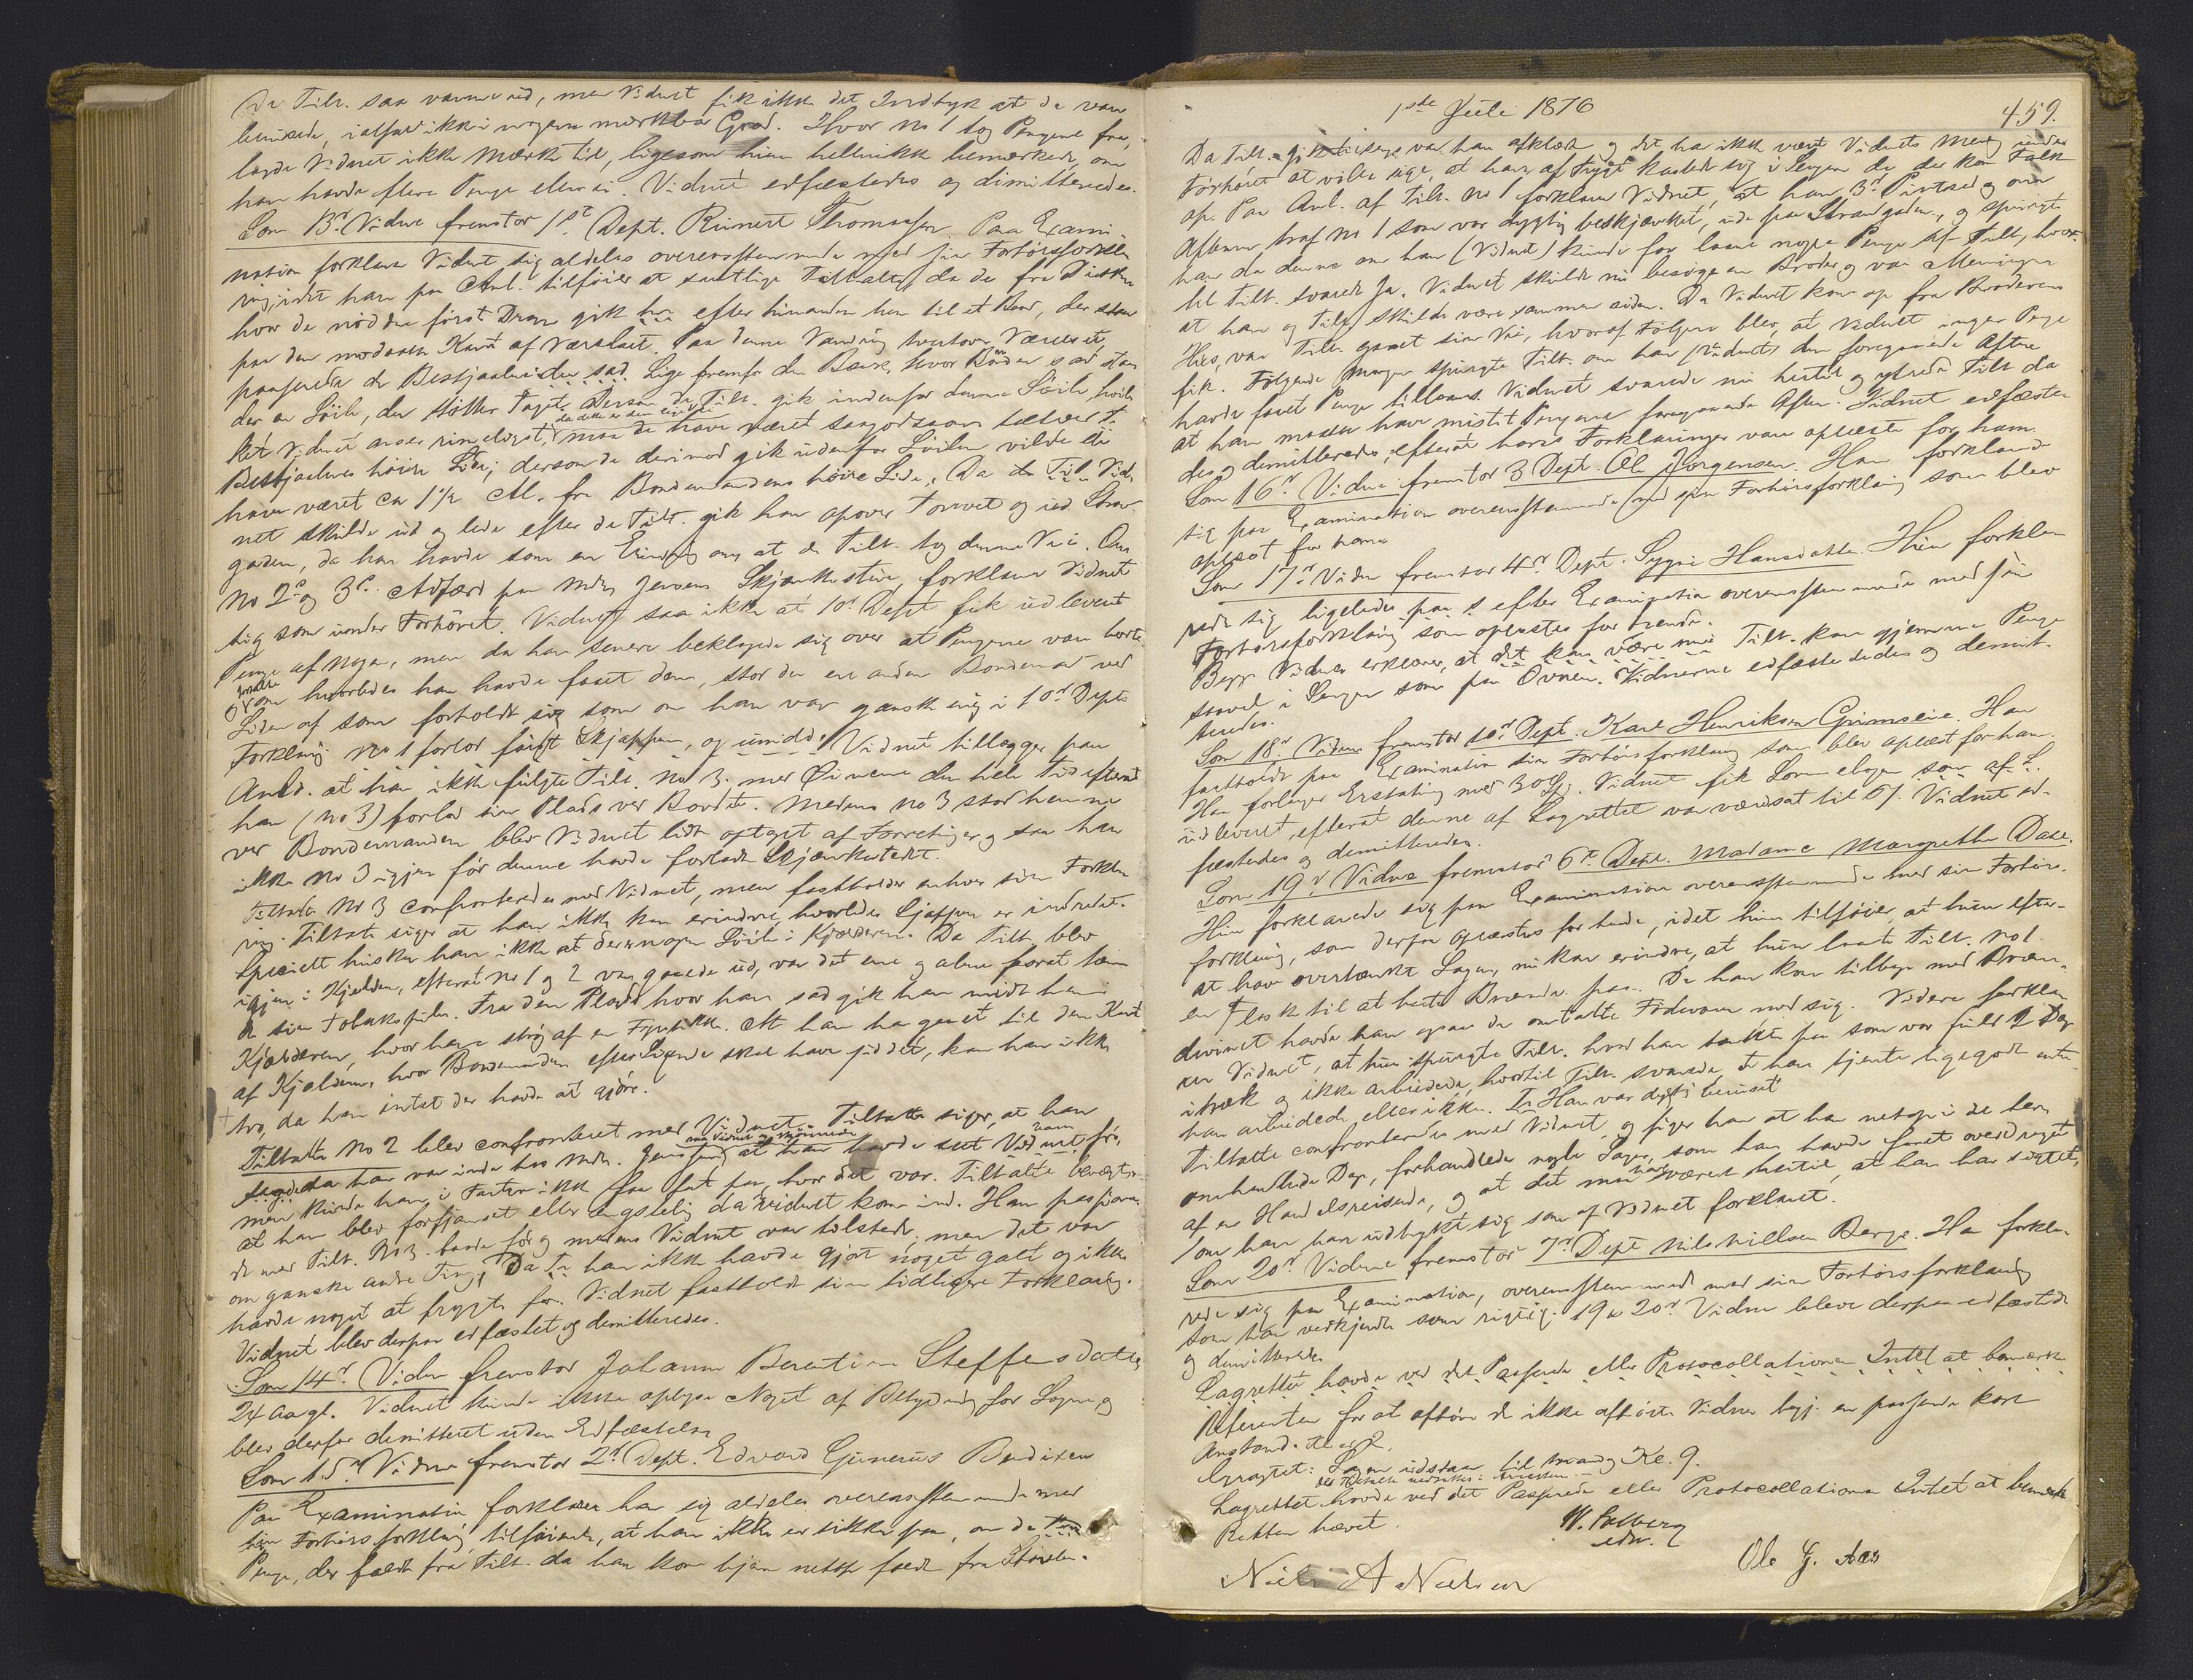 De Tilt. saa varme ud, men Vidnet fik ikke det Indtryk at de vare
berusede, ialfald ikke i nogen mærkbar Grad. Hvor No 1 tog Pengene fra,
lagde Vidnet ikke Mærke til, ligesom hun heller ikke bemærkede, om
han havde flere Penge eller ei. Vidnet edfæstedes og dimitteredes.
Som 13de Vidne fremstod 1ste Dept. Rinert Thomassen. Paa Exami-
nation forklarer Vidnet sig aldeles overensstemmende med sin Forhørsforkla
ring, idet han paa Anl. tilføier at samtlige Tiltalte, da de fra Disken
hvor de nød den først Dram gik hen efter hinanden hen til et Bord, der staar
paa den modsatte Kant af Værelset. Paa denne Vandring tvertover Værelset,
passerede de Bestjaalne der sad. Lige fremfor den Bænk, hvor Bonden sad staar
der en Søile, der støtter Taget. Dersom de Tilt. gik indenfor denne Søile, hvil
ket Vidnet anser rimeligst, maa de have været saagodtsom tæt ved
Bestjaalnes høire Side; dersom de derimod gik udenfor Søilen vilde de
have været ca 1½ Al. fra Bondemandens høire Side. Da Vid-
net skulde ud og lede efter de Tilt. gik han op over Torvet og ud Strand
gaden, da han havde som en Erindring om at de Tilt. tog denne Vei. Om
No 2s og 3s Adfærd paa Mdm Jensens Skjænkestue, forklarer Vidnet
sig som under Forhøret. Vidnet saa ikke at 10de Dept fik udleveret
Penge af Nogen, men da han senere beklagede sig over at Pengene vare borte
og om hvorledes han havde faaet dem, stod der en anden Bondemand ved
Siden af som forholdt sig som om han var ganske enig i 10de Depts
Forklaring. No 1 forlod først Skjappen, og umidd. Vidnet tillægger paa
Anled. at han ikke fulgte Tilt. No 3. med Øinene den hele Tid efterat
han (No 3) forlod sin Plads ved Bordet. Medens No 3 stod henne
ved Bondemanden blev Vidnet lidt optaget af Forretninger og saa han
ikke No 3 igjen før denne havde forladt Skjænkestedet.
Tiltalte No 3 confronteredes med Vidnet, men fastholder enhver sin Forkla
ring. Tiltalte siger at han ikke kan erindre, hvorledes Sjappen er indredet.
Specielt husker han ikke at der er nogen Søile i Kjælderen. Da Tilt. blev
igjen i Kjelderen, efterat No 1 og 2 var gaaede ud, var det ene og alene forat tæn
de sin Tobakspibe. Fra den Plads hvor han sad gik han midt hen i
Kjælderen, hvor han strøg af en Fyrstikke. At han ha gaaet til den Kant
af Kjælderen, hvor Bondemanden efter Sigende skal have siddet, kan han ikke
tro, da han intet der havde at gjøre.
Tiltalte No 2 blev confronteret med Vidnet. Tiltalte siger, at han
sagde da han var inde hos Mdm. Jensen, at han havde seet Vidnet før,
men kunde han i Farten ikke faa fat paa, hvor det var. Tiltalte benægter
at han blev forfjamset eller ængstelig da Vidnet kom ind. Han passiare
de med Tilt. No 3. baade før og medens Vidnet var tilstede; men det var
om ganske andre Ting, Da han ikke havde gjort noget galt og ikke
havde noget at frygte for. Vidnet fastholdt sin tidligere Forklaring.
Vidnet blev derpaa edfæstet og demitteredes.
Som 14de Vidne fremstod Johanne Berentine Steffensdatter
24 Aar gl. Vidnet kunde ikke oplyse Noget af Betydning for Sagen og
blev derfor demitteret uden Edfæstelse.
Som 15de Vidne fremstod 2det Dept. Edvard Gunerius Bendixen
Paa Examination forklarer han sig aldeles overensstemmende med
sin Forhørsforklaring, tilføiende, at han ikke er sikker paa, om de
Penge, der faldt fra Tilt. da han kom hjem netop faldt fra Støvlen.
1ste Juli 1876
459.
Da Tilt. gik tilsengs var han afklædt og det ha ikke været Vidnets Mening under
Forhøret at ville sige, at han af Frygt kastede sig i Sengen da der kom Folk
op. Paa Anl. af Tilt. No 1 forklarer Vidnet, at han 3de Pintsedag om
Aftenen traf No 1 som var dygtig beskjænket, ude paa Strandgaden, og spurgte
han da denne om han (Vidnet) kunde faa laane nogle Penge af Tilt, hvor-
til Tilt. svarede Ja. Vidnet skulde nu besøge en Broder og var Meningen
at han og Tilt. skulde være sammen siden. Da Vidnet kom op fra Broderens
Hus, var Tilt. gaaet sin Vei, hvoraf Følgen blev, at Vidnet ingen Penge
fik. Følgende Morgen spurgte Tilt. om han (Vidnet) den foregaaende Aften
havde faaet Penge tillaans. Vidnet svarede nei hertil og ytrede Tilt. da
at han maatte have mistet Pengene foregaaende Aften. Vidnet edfæste
des og demitteredes, efterat hans Forklaringer vare oplæste for ham.
Som 16de Vidne fremstod 3 Dept. Ole Jørgensen. Han forklarede
sig paa Examination overensstemmende med sin Forhørsforklaring som blev
oplæst for ham
Som 17de Vidne fremstod 4de Dept. Signe Hansdatter. Hun forkla
rede sig ligeledes paa efter Examination overensstemmende med sin
Forhørsforklaring som oplæstes for hende.
Begge Vidner erklærer, at det kan være muligt Tilt. kan gjemme Penge
saavel i Sengen som paa Ovnen. Vidnerne edfæstededes og demit-
teredes.
Som 18de Vidne fremstod 5te Dept. Karl Henriksen Grimseie. Han
fastholdt paa Examination sin Forhørsforklaring som blev oplæst for ham.
Han forlanger Erstatning med 30 Sp. Vidnet fik Lommebogen
udleveret, efterat denne af Lagrettet var værdsat til 6 ß. Vidnet ed-
fæstedes og demitteredes.
Som 19de Vidne fremstod 6te Dept. Madame Margrethe Dase.
Hun forklarede sig paa Examination overensstemmende med sin Forhørs-
forklaring, som derfor oplæstes for hende, idet hun tilføier, at hun efter-
at have overtænkt Sagen, nu kan erindre, at hun laante Tilt. No 1
en Flaske til at hente Brændev. paa. Da han kom tilbage med Bræn-
devinet havde han ogsaa de omtalte Fødevarer med sig. Videre forkla
rer Vidnet, at hun spurgte Tilt. hvad han tænkte paa som var fuld 2 Dage
itræk og ikke arbeidede, hvortil Tilt. svarede, at han tjente ligegodt enten
han arbeidede eller ikke. Han var dygtig beruset
Tiltalte confronteredes med Vidnet, og siger han at han netop i de Dage
omhandlede Dage, forhandlede nogle Sager, som han havde faaet overdraget
af en Handelsreisende, og at det maa have været hertil, at han har sigtet,
om han har udtrykt sig som af Vidnet forklaret.
Som 20de Vidne fremstod 7de Dept Nils Nilsen Berge. Han forkla
rede sig paa Examination, overensstemmende med sin Forhørsforklaring
som han vedkjendte som rigtig. 19 og 20de Vidne bleve derpaa edfæstede
og dimitterede.
Lagrettet havde ved det Passerede eller Protocollationen Intet at bemærke
Referenten for at afhøre de ikke afhørte Vidner begj. en passende kort
Anstand.
Eragtet: Sagen udstaar til Mandag Kl. 9.
Lagrettet havde ved det Passerede eller Protocollationen Intet at bemærke
Retten hævet.
edv.
Niels A Nielsen
Ole G. Aas